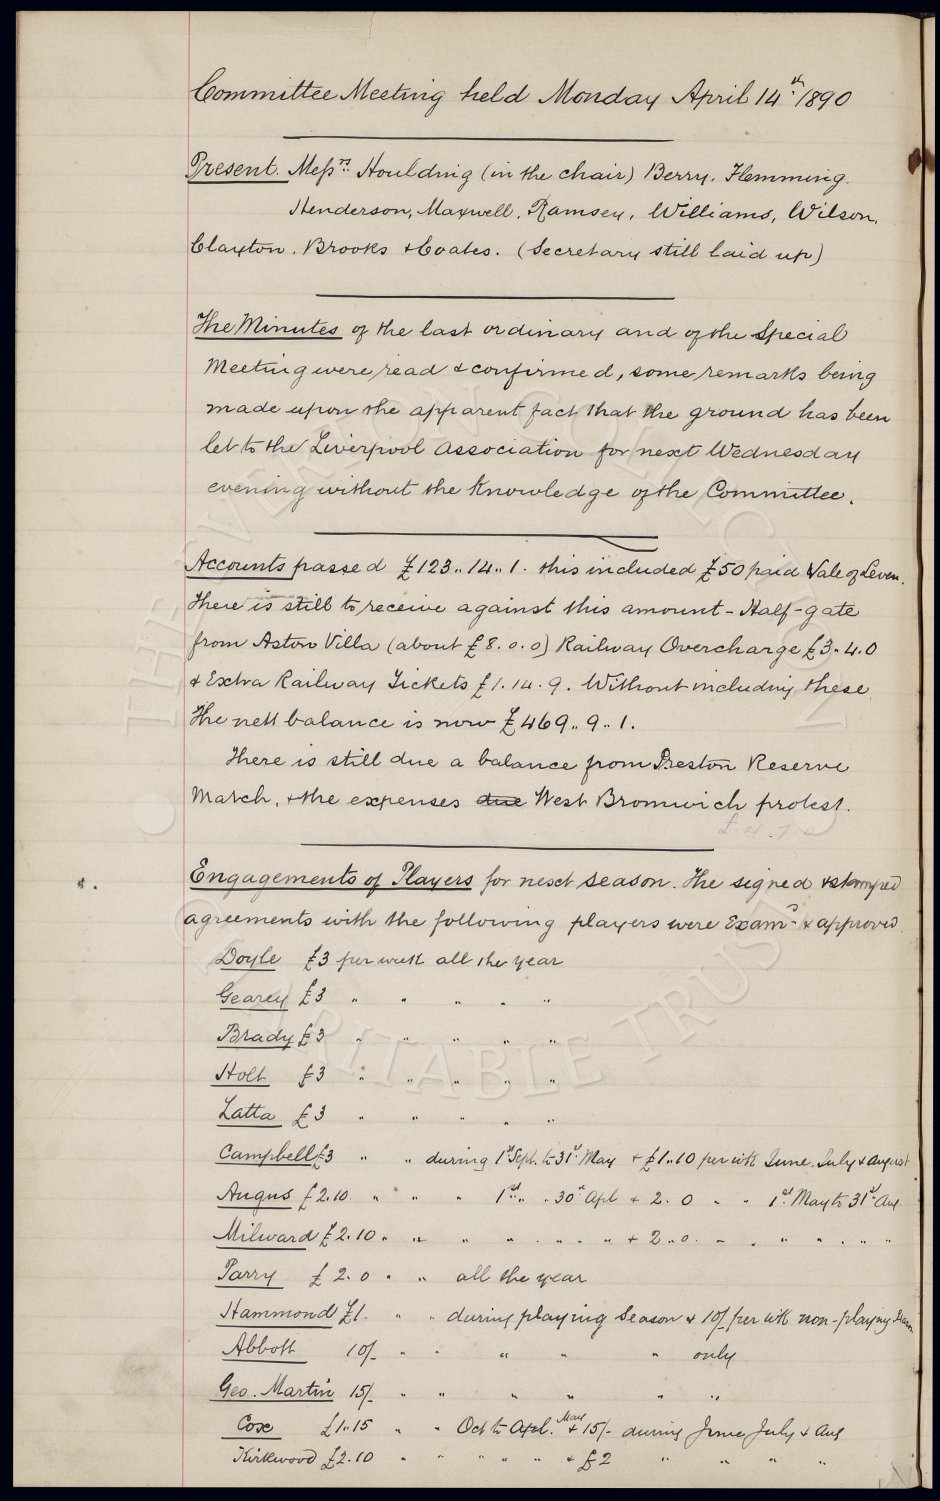 Committee Meeting held Monday April 14th 1890
Present. Messrs Houlding (in the chair) Berry, Flemming.
Henderson, Maxwell, Ramsey, Williams, Wilson,
Clayton, Brooks + Coates. (Secretary still laid up)
The Minutes of the last ordinary and of the Special
Meeting were read & confirmed, some remarks being
made upon the apparent fact that the ground has been
let to the Liverpool Association for next Wednesday
evening without the Knowledge of the Committee.
Accounts passed £123..14..1. this included £50 paid Vale of Leven.
There is still to receive against this amount - Half-gate
from Aston Villa (about £8.0.0) Railway Overcharge £3.4.0
& Extra Railway Tickets £1.14.9. Without including these
The nett balance is now £469..9..1.
There is still due a balance from Preston Reserve
Match, & the expenses due West Bromwich protest.
£4.7.0
Engagements of Players for next season. The signed & stamped
agreements with the following players were Examd & approved.
Doyle £3 per week all the year
Gearey £3 " " " " "
Brady £3 " " " " "
Holt £3 " " " " "
Latta £3 " " " " "
Campbell £3 " " during 1st Sept. to 31st May + £1..10 per wk June, July & August
Angus £2.10 " " " 1st " " 30th Apl + 2.0 " " 1st May to 31st Aug.
Milward £2.10 " " " " " " " " + 2..0. " " " " " " "
Parry £2.0 " " all the year
Hammond £1. " " during playing Season & 10/- per wk non-playing Season
Abbott 10/- " " " " " only
Geo. Martin 15/- " " " " " "
Cox £1.15 " " Oct to Apl. May & 15/- during June July & Aug
Kirkwood £2.10 " " " " " & £2 " " " "
THE EVERTON COLLECTION CHARITABLE TRUST